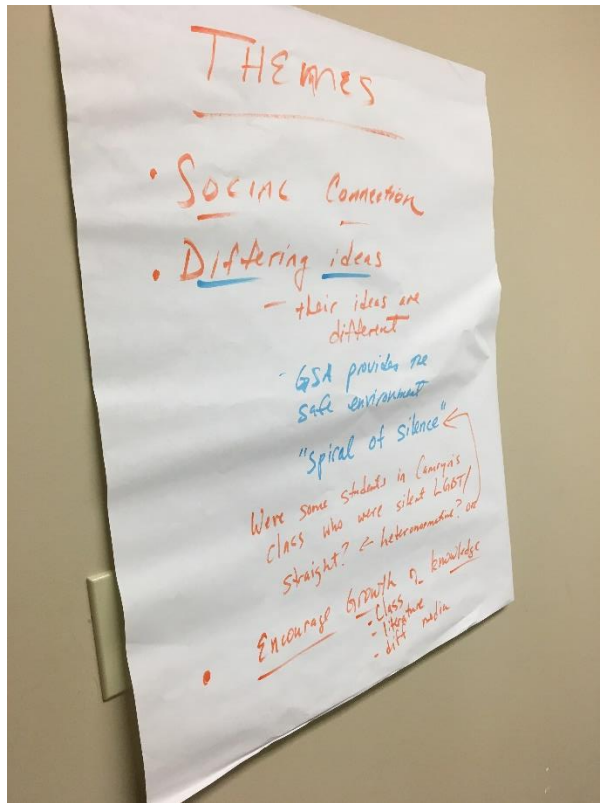 THEMES
• Social Connection
• Differing ideas
– their ideas are
different
- GSA provides the
safe environment
"Spiral of Silence"
Were some students in Camryn's
class who were silent LGBT/
straight? ← heteronormative?
• Encourage Growth of knowledge
- Class
- literature
- diff media